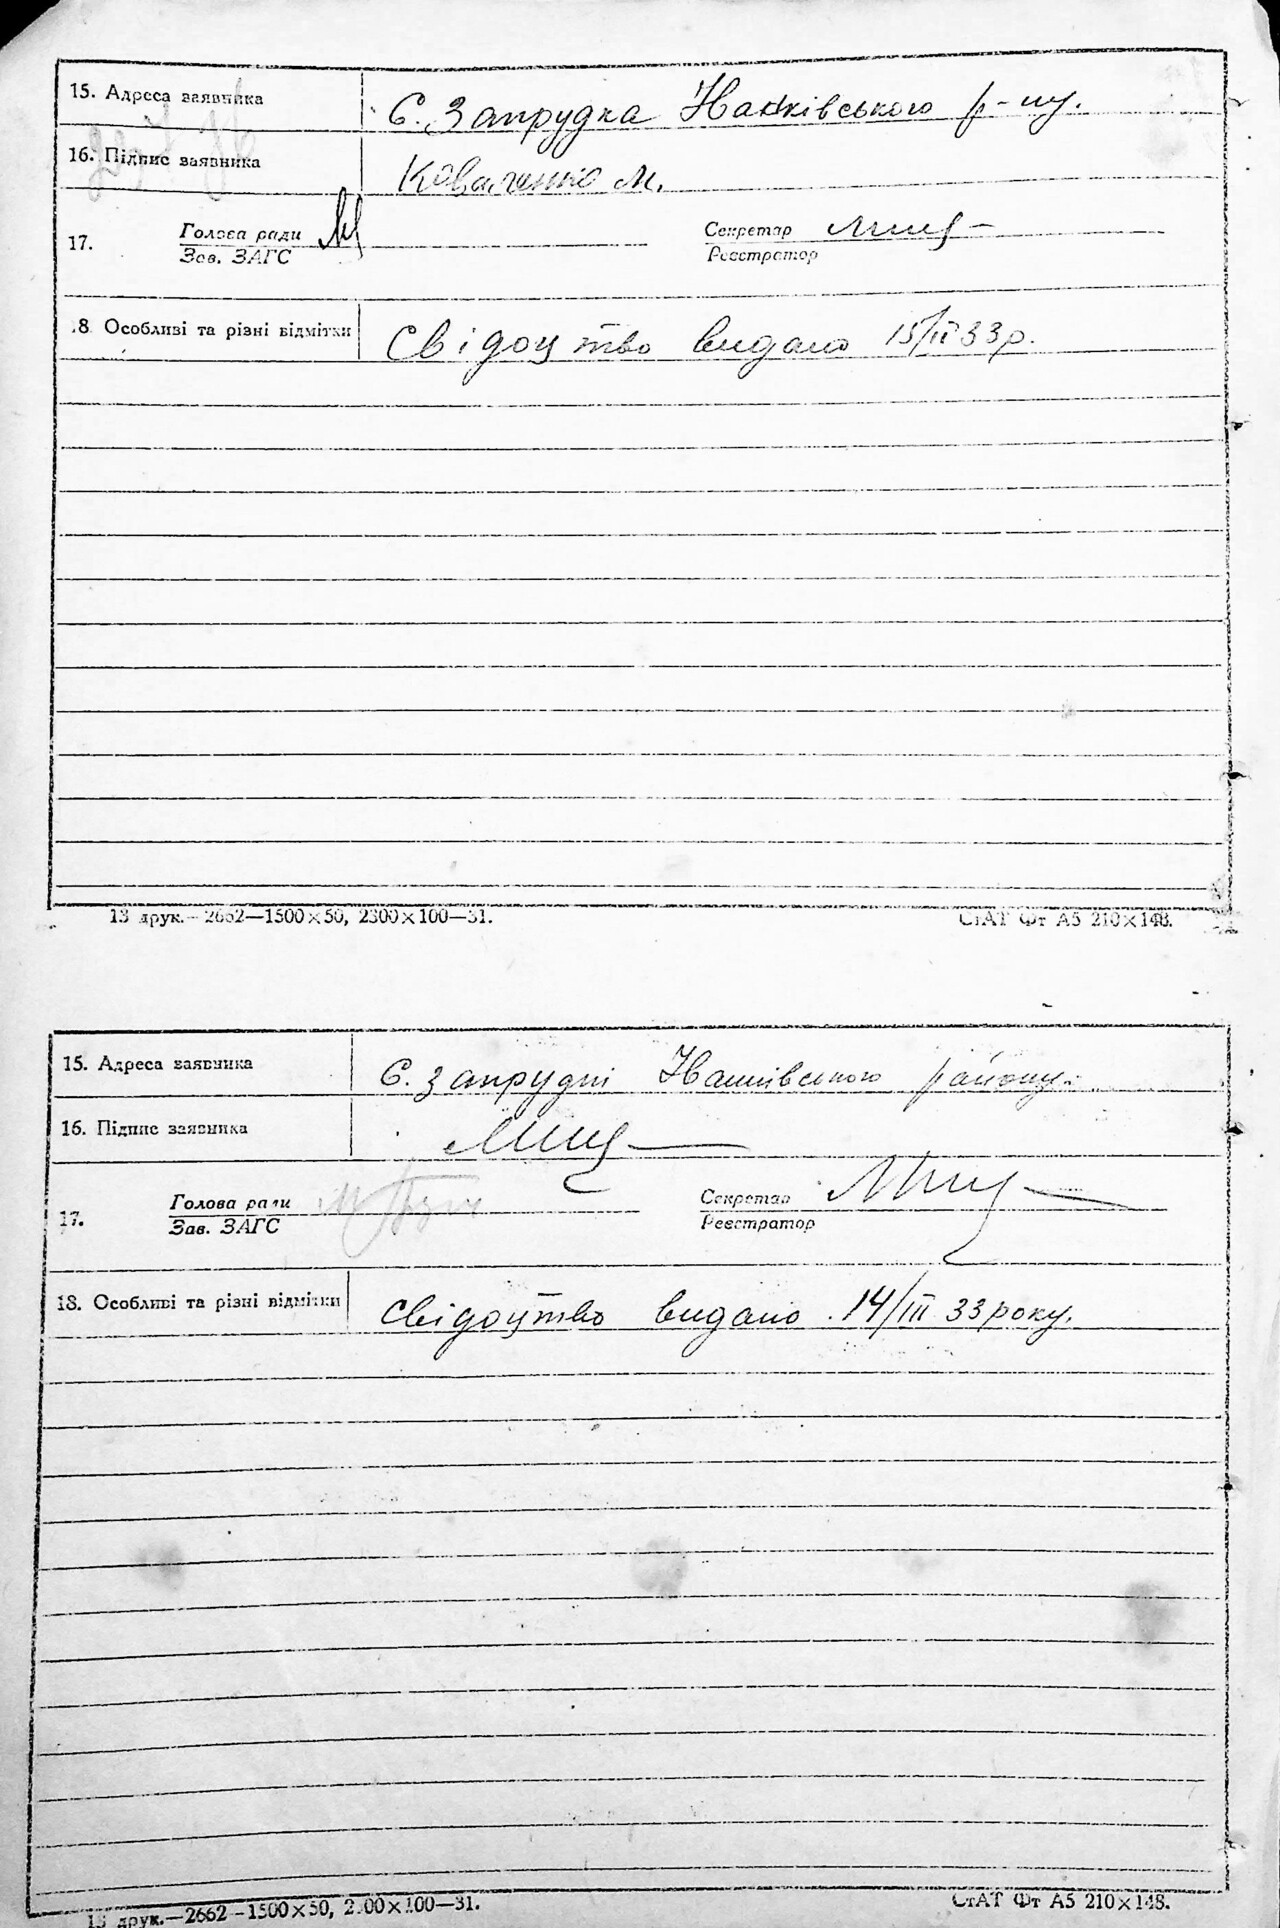 15. Адреса заявника С. Запрудка Іванківського р-ну.
16. Підпис заявника Коваленко М.
17. Голова ради Секретар
Зав. ЗАГС Реєстратор
18. Особливі та різні відмітки Свідоцтво видано 15/II 33 р.
13 друк.—2662—1500×50, 2300×100—31. СтАТ Фт А5 210×148.
15. Адреса заявника С. Запрудні Іванківського району.
16. Підпис заявника
17. Голова ради Секретар
Зав. ЗАГС Реєстратор
18. Особливі та різні відмітки Свідоцтво видано 14/III 33 року.
13 друк.—2662—1500×50, 2300×100—31. СтАТ Фт А5 210×148.